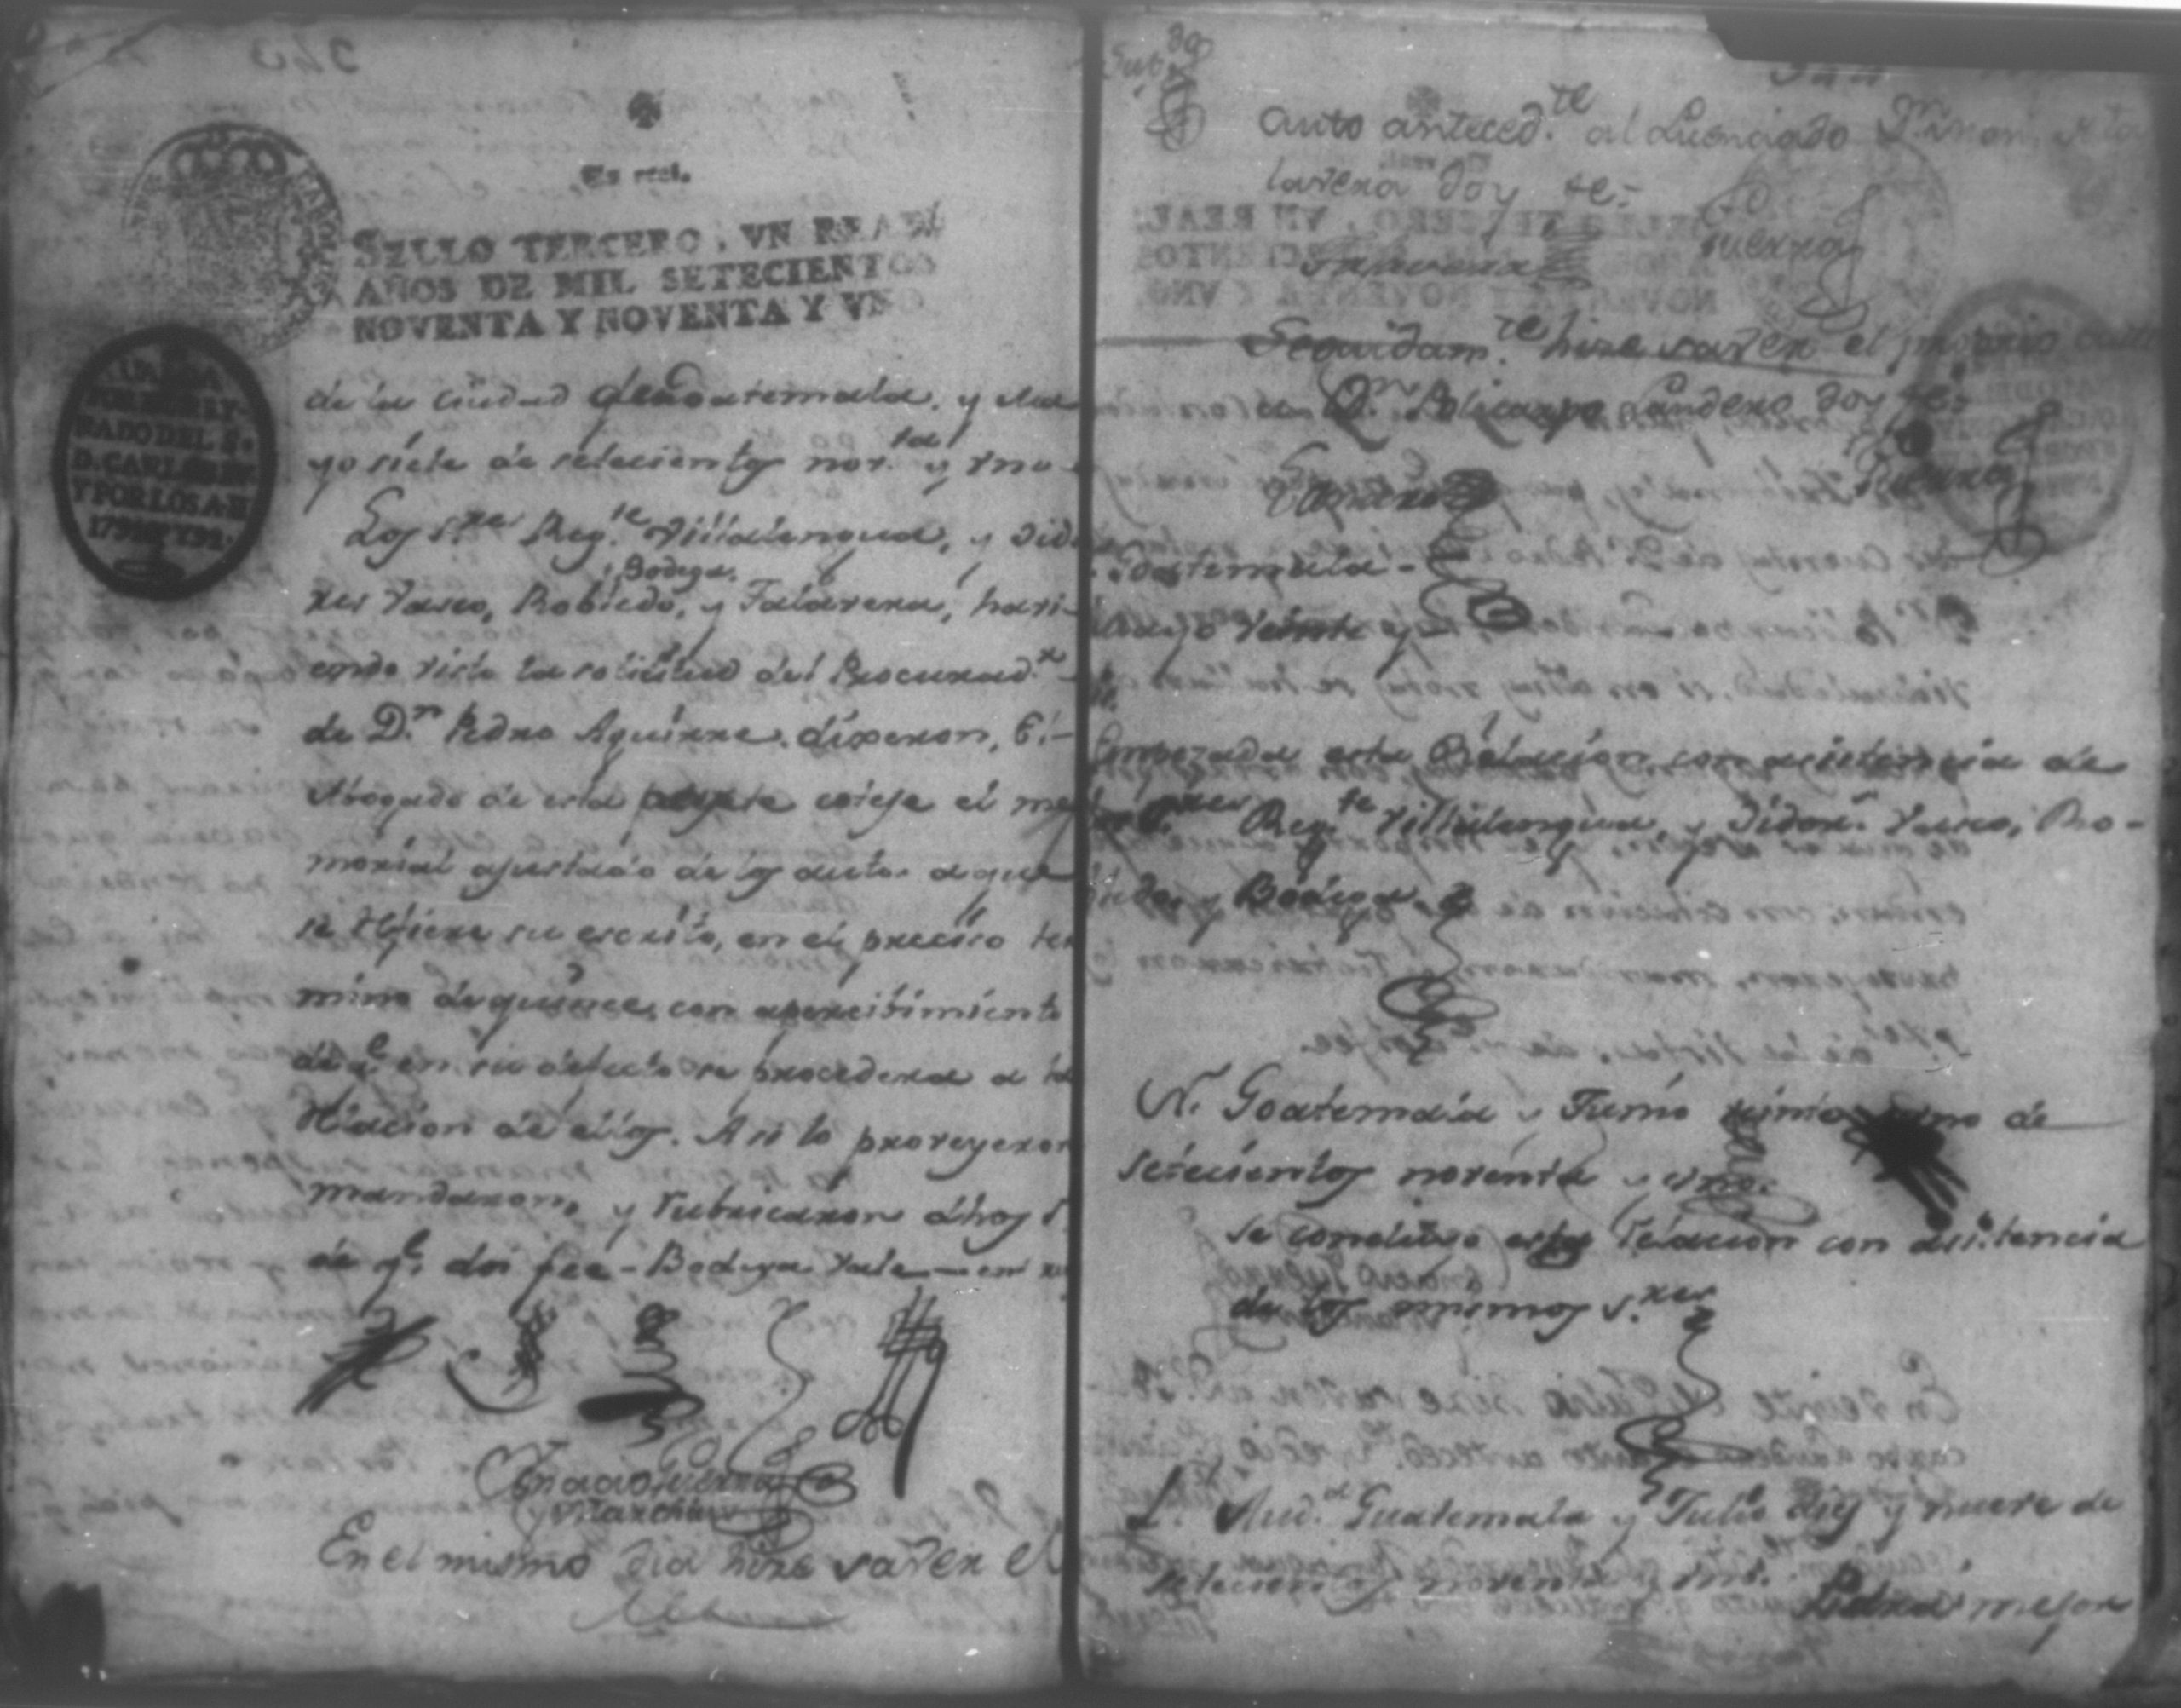 Un real.
SELLO TERCERO, VN REAL
AÑOS DE MIL SETECIENTOS
NOVENTA Y NOVENTA Y VNO
D. CARLOS IV
Y POR LOS A. D
1791 Y 92.
de la Ciudad de Goatemala. y Ma
yo siete de setecientos nov.ta y vno
Los S.res Reg.te Villalengua, y Oido
res Vasco, Robledo, y Bodega, y Talavera, havi
endo visto la solicitud del Procurad.r
de D.n Pedro Aguirre. dixeron, El
Abogado de esta parte coteje el me
morial ajustado de los autos a que
se refiere su escrito, en el preciso ter
mino de quince, con apercibimiento
de q.e en su defecto se procedera a la
relacion de ellos. Asi lo proveyeron
mandaron, y rubricaron dhos S.
de q.e doi feé - Bodega. Vale
Ignacio Guerra
y Marchan
En el mismo dia hize saver el
auto anteced.te al Licenciado
lavera doy fe=
Talavera
Guerra
Seguidam.te hize saver el
a D.n Policarpo Landero doy fe=
Landero
Guerra
Goatemala
Mayo veinte y
Empezada esta Relacion con asistencia de
los S.res Reg.te Villalengua, y Oidor.s Vasco, Ro-
bledo, y Bodega.
N. Goatemala y Junio de
setecientos noventa y uno.
se concluyó esta relacion con asistencia
de los mismos S.res
Guatemala y Julio diez y nueve de
setecientos noventa y uno.